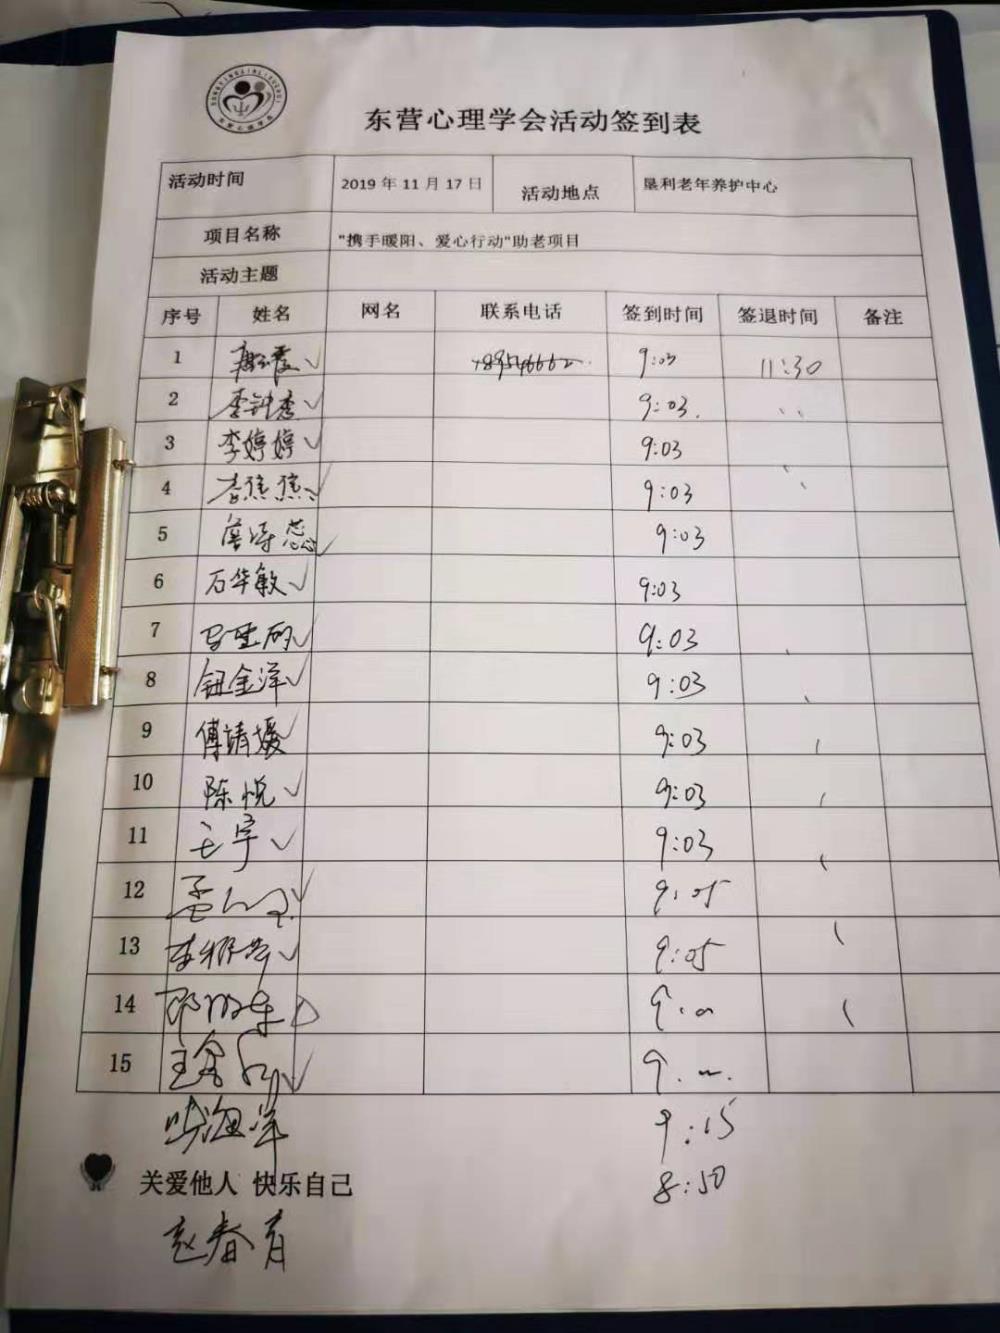 东营心理学会
东营心理学会活动签到表
活动时间 2019 年 11 月 17 日 活动地点 垦利老年养护中心
项目名称 "携手暖阳、爱心行动"助老项目
活动主题
序号 姓名 网名 联系电话 签到时间 签退时间 备注
1 9:03 11:30
2 李钟秀 9:03.
3 李婷婷 9:03
4 李焦焦 9:03
5 9:03
6 石华敏 9:03
7 9:03
8 钮金洋 9:03
9 傅靖媛 9:03
10 陈悦 9:03
11 王宇 9:03
12 孟 9:05
13 李 9:05
14 9:
15 王 9:
海洋 9:15
关爱他人 快乐自己 8:50
赵春育